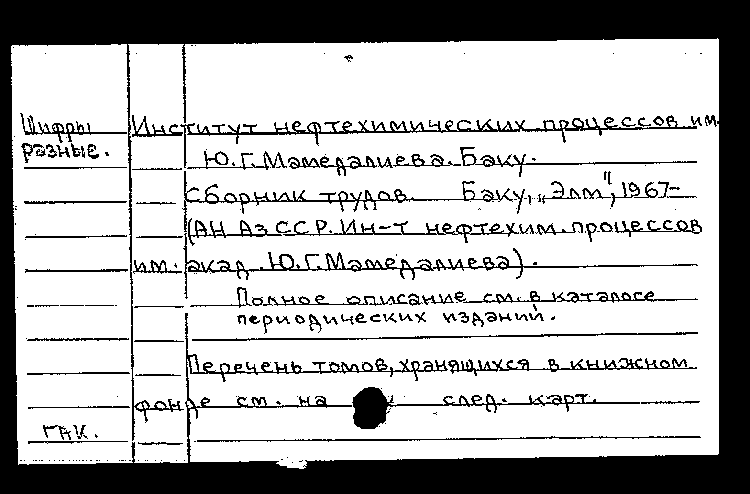 Шифры разные.
Институт нефтехимических процессов им.
Ю.Г.Мамедалиева. Баку.
Сборник трудов. Баку, „Элм", 1967-
(АН АзССР. Ин-т нефтехим. процессов
им. акад. Ю.Г.Мамедалиева).
Полное описание см. в каталоге
периодических изданий.
Перечень томов, хранящихся в книжном
фонде см. на след. карт.
ГАК.